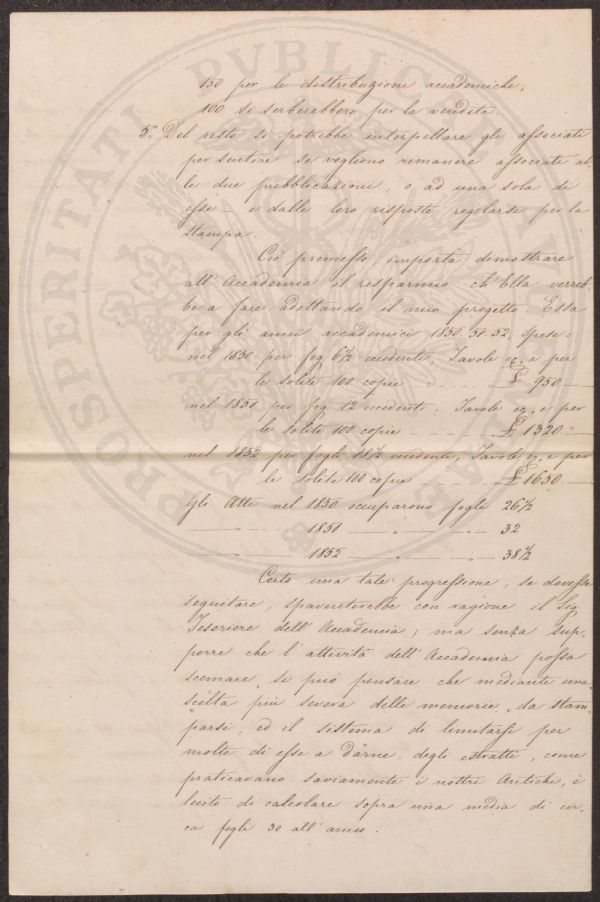 150 per le distribuzioni accademiche;
100 si serberebbero per la vendita.
5.° Del resto si potrebbe interpellare gli associati
per sentire se vogliono rimanere associati al-
le due pubblicazioni, o ad una sola di
esse — e dalle loro risposte regolarsi per la
stampa.
Ciò premesso importa dimostrare
all'Accademia il risparmio ch'Ella verreb-
be a fare adottando il mio progetto. Essa
per gli anni accademici 1850. 51. 52. spese:
nel 1850 per fog. 6½ eccedenti, Tavole e per
le solite 100 copie £ 950
nel 1851 per fog. 12 eccedenti. Tavole e per
le solite 100 copie £ 1320
nel 1852 per fogli 18½ eccedenti, Tavole e per
le solite 100 copie £ 1650.
Gli Atti nel 1850 occuparono fogli 26½
— „ — 1851 — „ — „ — 32
— „ — 1852 — „ — „ — 38½
Certo una tale progressione, se dovesse
seguitare, spaventerebbe con ragione il Sig.
Tesoriere dell'Accademia; ma senza sup-
porre che l'attività dell'Accademia possa
scemare, si può pensare che mediante una
scelta più severa delle memorie da stam-
parsi, ed il sistema di limitarsi per
molte di esse a darne degli estratti, come
praticavano saviamente i nostri Antichi, è
lecito di calcolare sopra una media di cir-
ca fogli 30 all'anno.
PROSPERITATI PVBLICAE AV